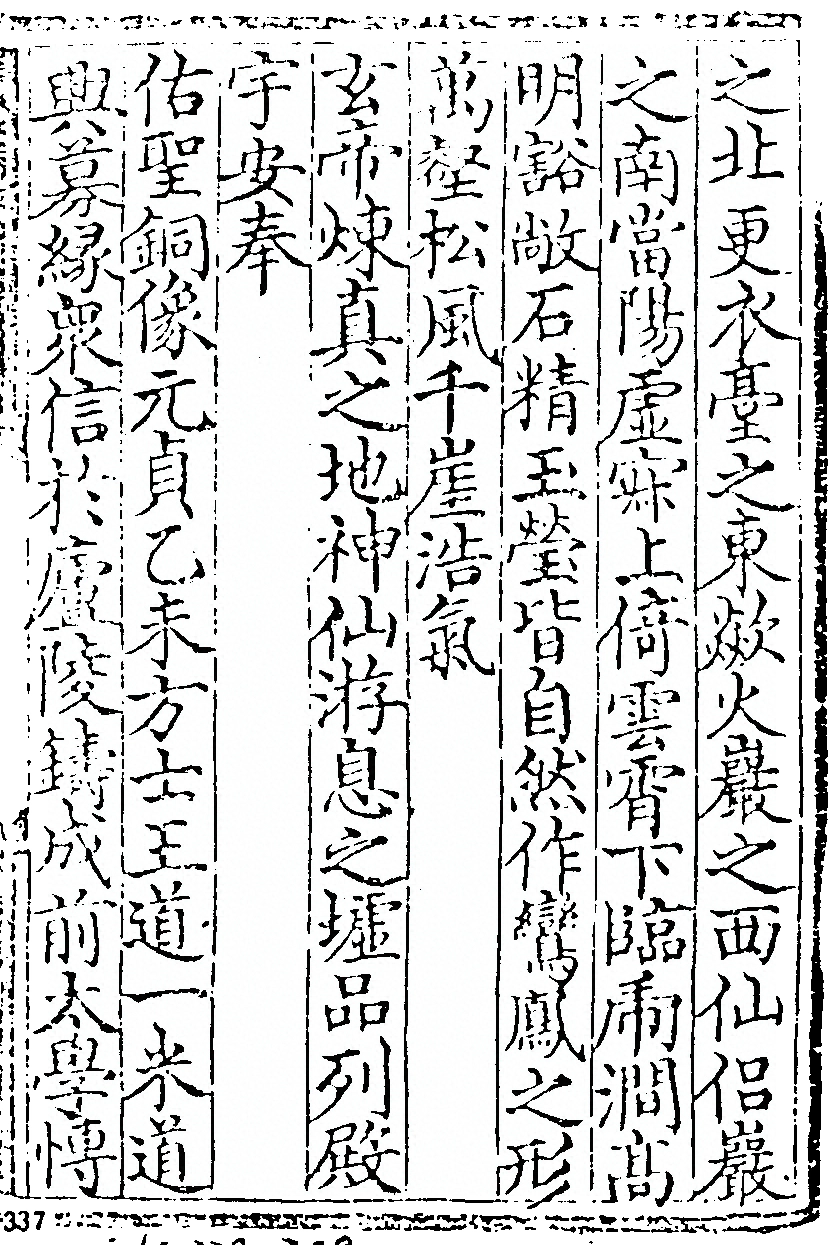 之北更衣臺之東歘火巖之西仙侣巖
之南當陽虛寂上倚雲霄下臨虎澗髙
明豁敞石精玉瑩皆自然作鸞鳳之形
萬壑松風千崖浩氣
玄帝煉真之地神仙游息之墟品列殿
宇安奉
佑聖銅像元貞乙未方士王道一米道
興募緣衆信於廬陵鑄成前太學博
337